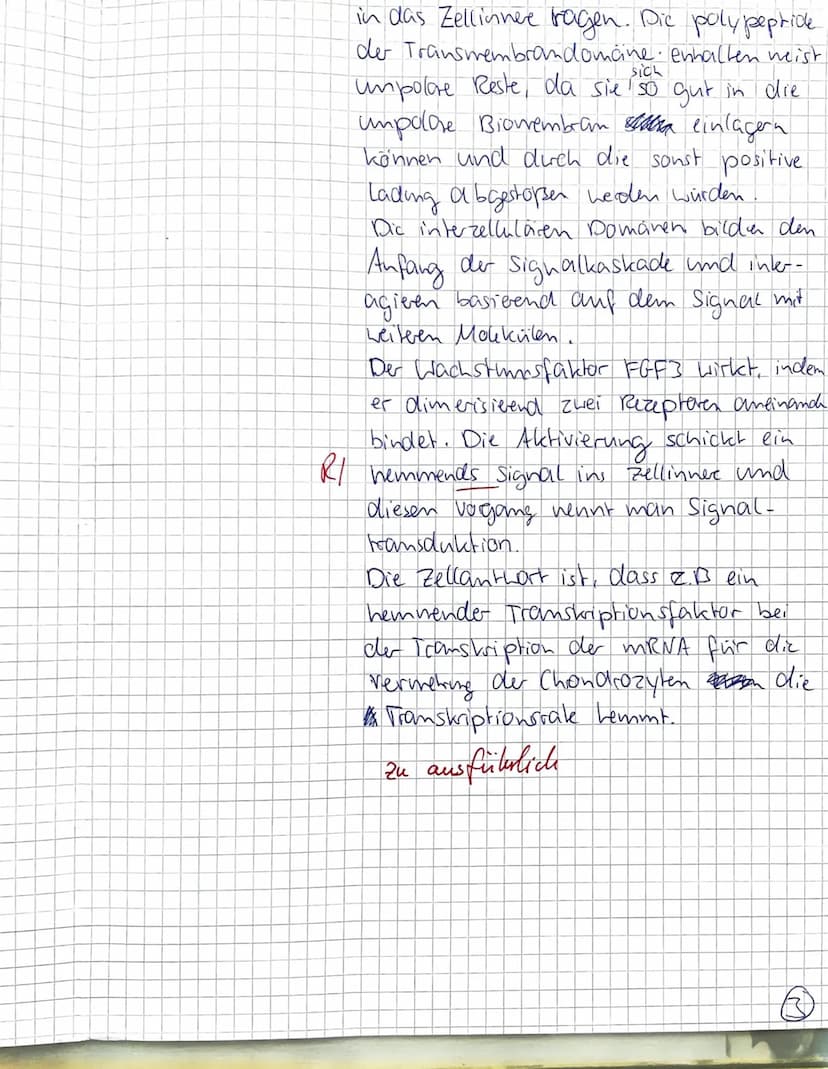 in das Zellinnere ragen. Die polypeptide
der Transmembrandomäne enhalten meist
unpolare Reste, da sie sich so gut in die
unpolare Biomembran einlagern
können und durch die sonst positive
Ladung abgestoßen werden würden.
Die interzellulären Domänen bilden den
Anfang der Signalkaskade und inter-
agieren basierend auf dem Signal mit
weiteren Molekülen.
Der Wachstumsfaktor FGF3 wirkt, indem
er dimerisierend zwei Rezeptoren aneinand
bindet. Die Aktivierung schickt ein
R/ hemmends Signal ins Zellinnere und
diesen Vogang nennt man Signal-
transduktion.
Die Zellantwort ist, dass z.B ein
hemmender Transkriptionsfaktor bei
der Transkription der mRNA für die
Vermehrung der Chondrozyten die
Transkriptionsrate hemmt.
zu ausführlich
3